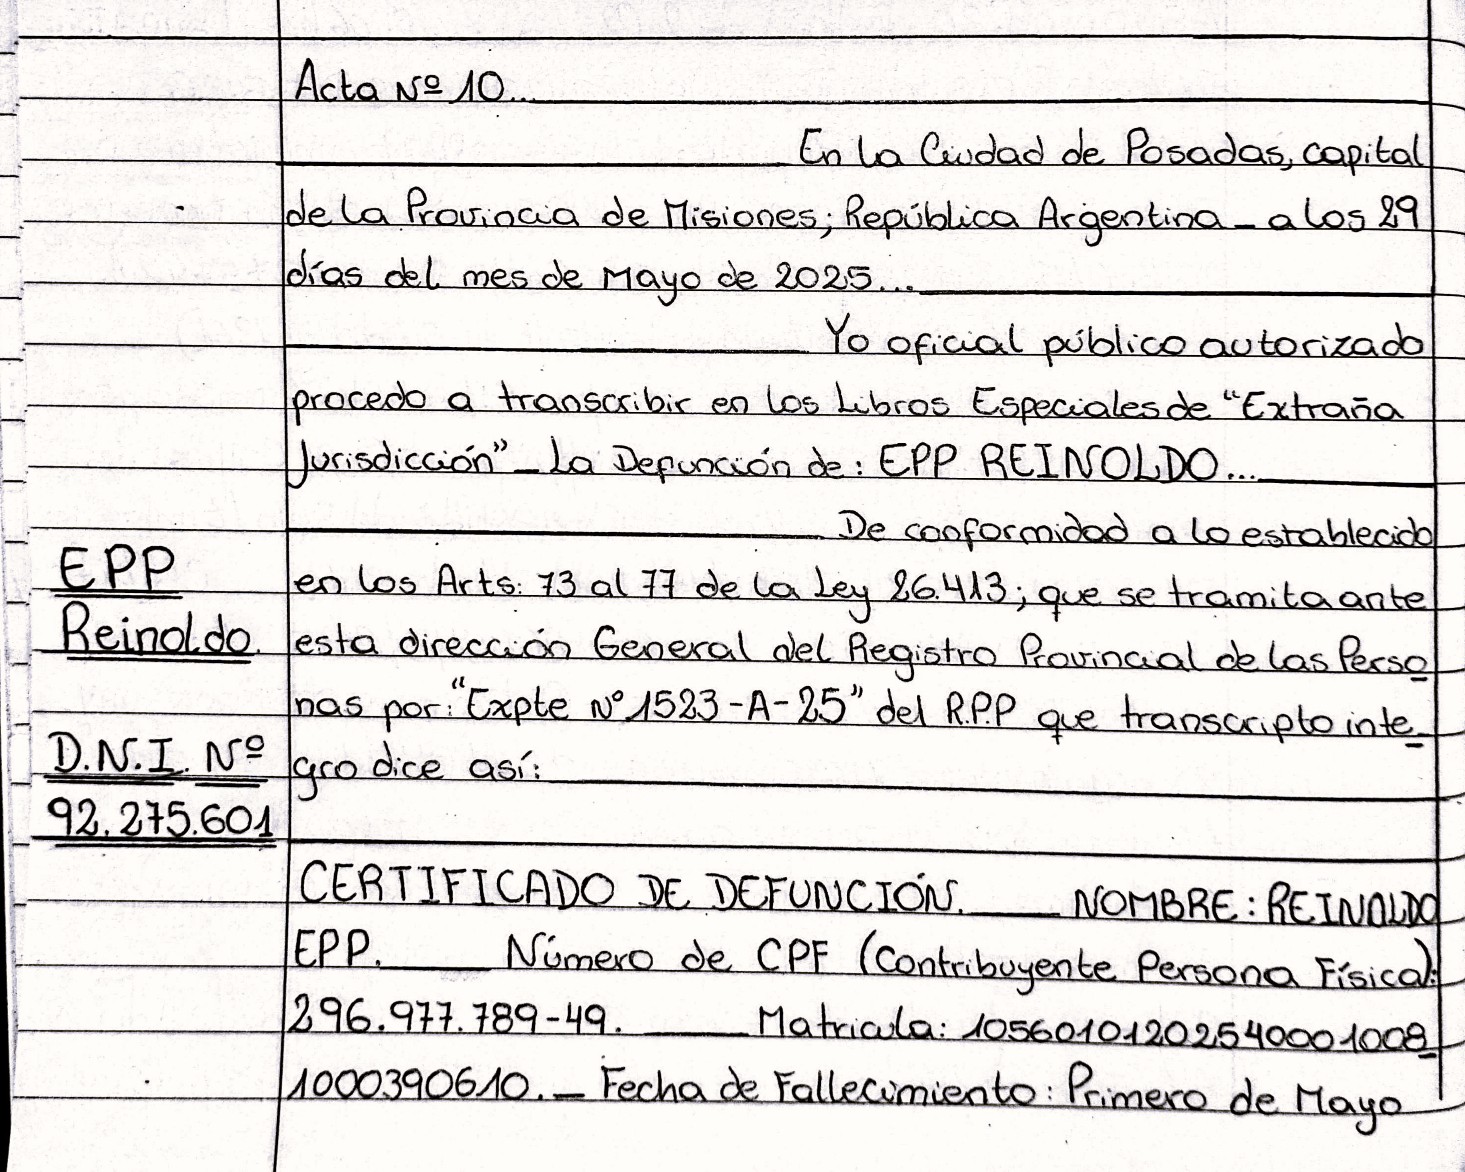 Acta Nº 10...
En la Ciudad de Posadas, capital
de la Provincia de Misiones; República Argentina _ a los 29
días del mes de Mayo de 2025...
Yo oficial público autorizado
procedo a transcribir en los Libros Especiales de "Extraña
Jurisdicción" _ La Defunción de: EPP REINOLDO...
De conformidad a lo establecido
en los Arts: 73 al 77 de la Ley 26.413; que se tramita ante
esta dirección General del Registro Provincial de las Perso
nas por: "Expte Nº 1523-A-25" del R.P.P que transcripto inte
gro dice así:
EPP
Reinoldo.
D.N.I. Nº
92.275.601
CERTIFICADO DE DEFUNCIÓN. NOMBRE: REINALDO
EPP. Número de CPF (Contribuyente Persona Física):
296.977.789-49. Matricula: 10560101202540001008
1000390610. _ Fecha de Fallecimiento: Primero de Mayo